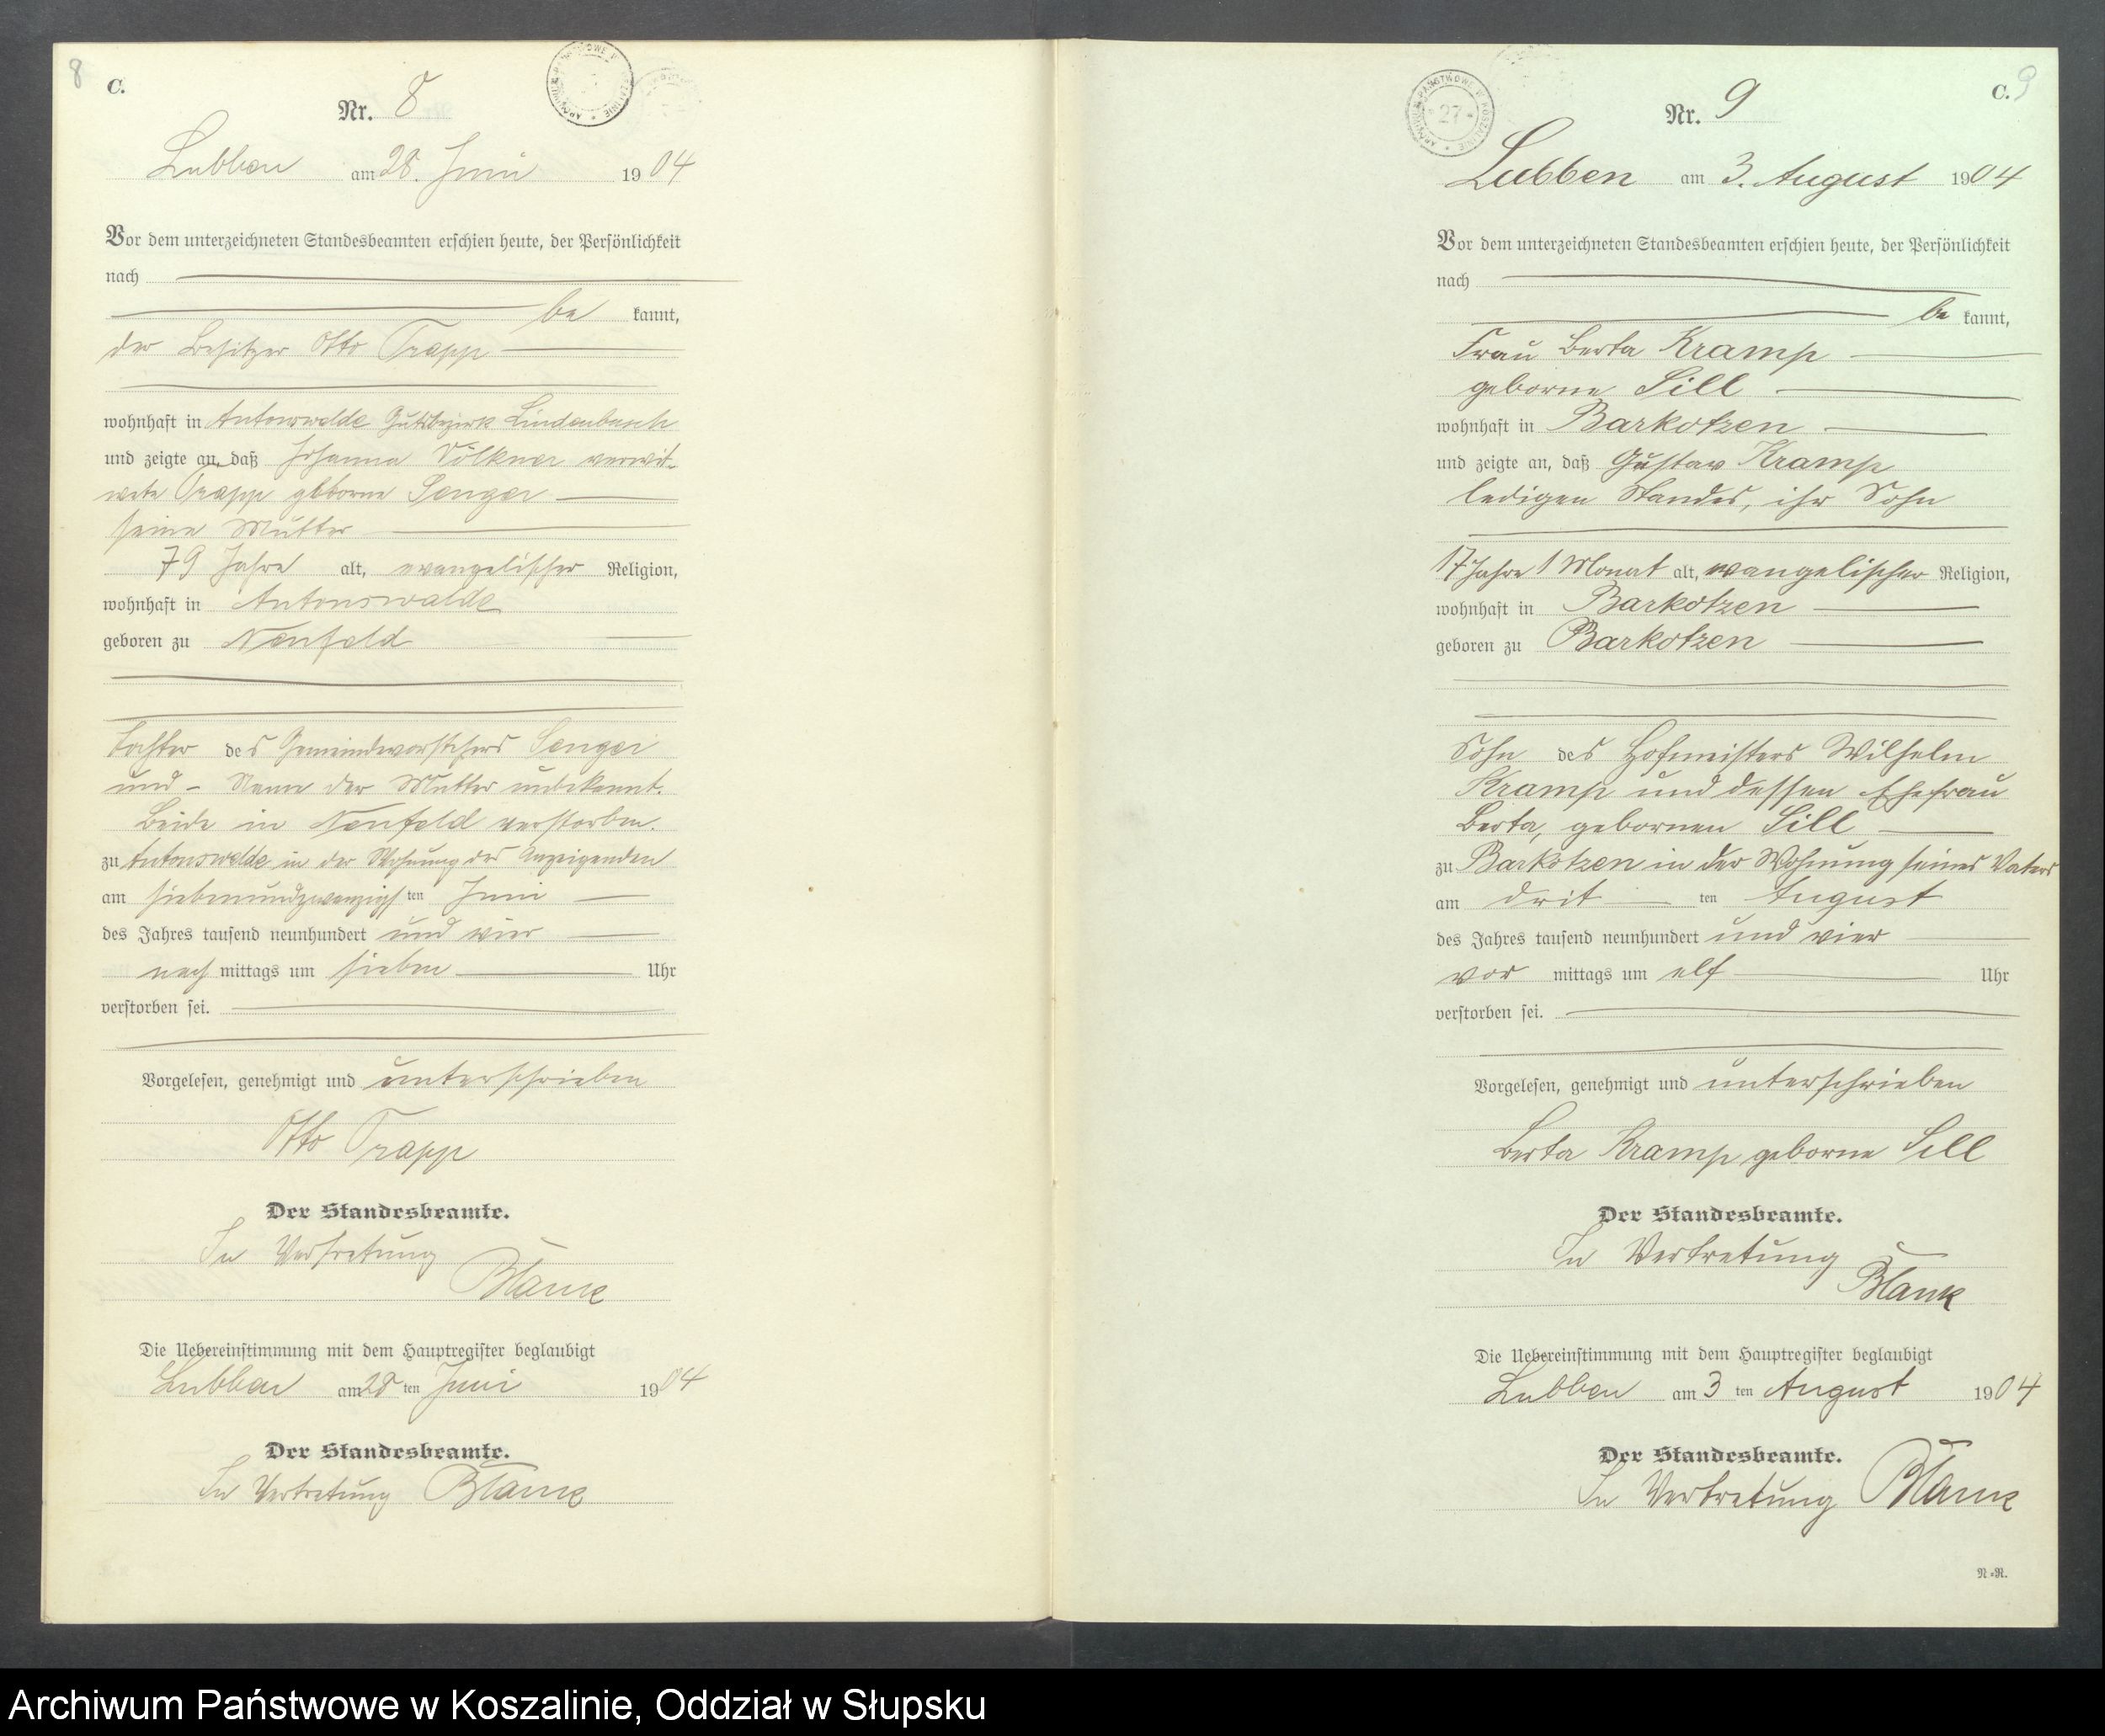 8
C.
Nr. 8
Lubben am 28. Juni 1904
Vor dem unterzeichneten Standesbeamten erschien heute, der Persönlichkeit
nach
be kannt,
der Besitzer Otto Trapp
wohnhaft in Antonswalde Gutsbezirk Lindenbusch
und zeigte an, daß Johanna Völkner verwit-
wete Trapp geborne Senger
seine Mutter
79 Jahre alt, evangelischer Religion,
wohnhaft in Antonswalde
geboren zu Neufeld
Tochter des Gemeindevorstehers Senger
und - Name der Mutter unbekannt.
Beide in Neufeld verstorben.
zu Antonswalde in der Wohnung des Anzeigenden
am siebenundzwanzigsten Juni
des Jahres tausend neunhundert und vier
nach mittags um sieben Uhr
verstorben sei.
Vorgelesen, genehmigt und unterschrieben
Otto Trapp
Der Standesbeamte.
In Vertretung
Blank
Die Uebereinstimmung mit dem Hauptregister beglaubigt
Lubben am 28 ten Juni 1904
Der Standesbeamte.
In Vertretung Blank
ARCHIWUM PAŃSTWOWE W KOSZALINIE
27
C. 9
Nr. 9
Lubben am 3. August 1904
Vor dem unterzeichneten Standesbeamten erschien heute, der Persönlichkeit
nach
be kannt,
Frau Berta Kramp
geborne Sill
wohnhaft in Barkotzen
und zeigte an, daß Gustav Kramp
ledigen Standes, ihr Sohn
17 Jahre 1 Monat alt, evangelischer Religion,
wohnhaft in Barkotzen
geboren zu Barkotzen
Sohn des Hofmeisters Wilhelm
Kramp und dessen Ehefrau
Berta, gebornen Sill
zu Barkotzen in der Wohnung seines Vaters
am drit ten August
des Jahres tausend neunhundert und vier
vor mittags um elf Uhr
verstorben sei.
Vorgelesen, genehmigt und unterschrieben
Berta Kramp geborne Sill
Der Standesbeamte.
In Vertretung
Blank
Die Uebereinstimmung mit dem Hauptregister beglaubigt
Lubben am 3 ten August 1904
Der Standesbeamte.
In Vertretung Blank
N.=R.
Archiwum Państwowe w Koszalinie, Oddział w Słupsku